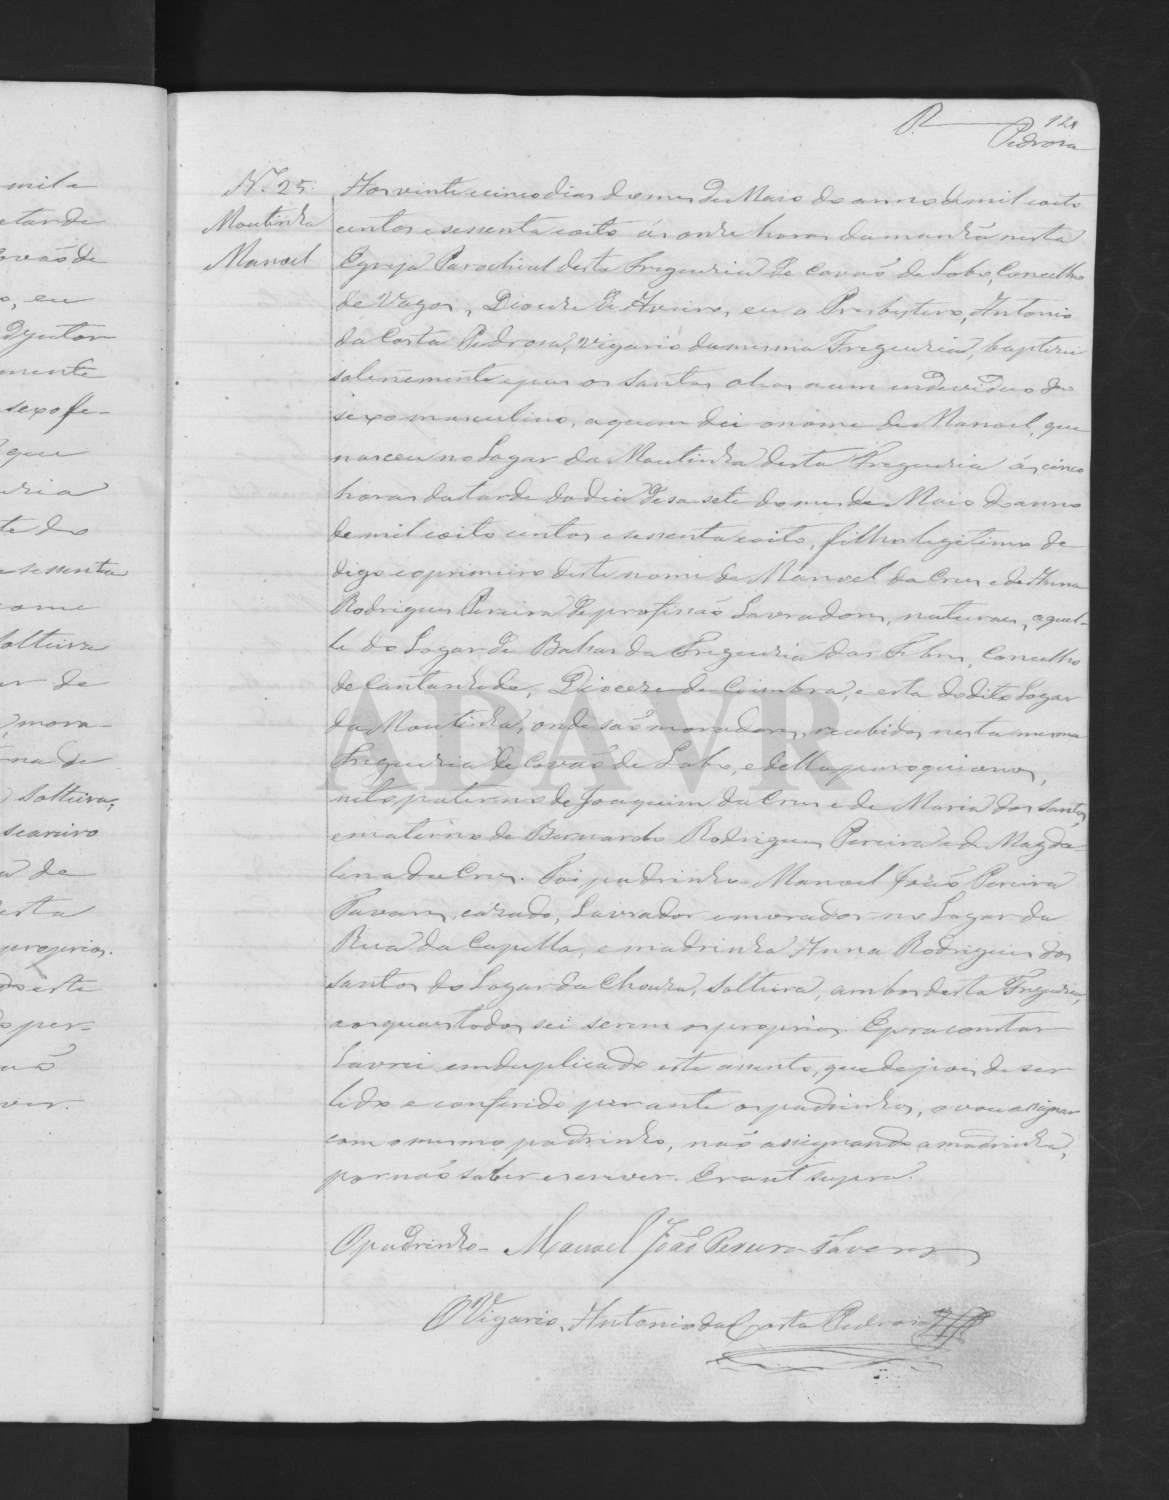 R
12
Pedrosa
N.º 25.
Moutinha
Manoel
Aos vinte e cinco dias do mes de Maio do anno de mil e oito
centos e sessenta e oito ás onze horas da manhã nesta
Egreja Parochial desta Freguezia de Covaõ do Lobo, Concelho
de Vagos, Diocese de Aveiro, eu o Presbytero, Antonio
da Costa Pedrosa, vigario da mesma Freguezia, baptizei
solennemente e puz os Santos oleos a um individuo do
sexo masculino, a quem dei o nome de Manoel, que
nasceu no Lugar da Moutinha desta Freguezia ás cinco
horas da tarde do dia desasete do mes de Maio do anno
de mil e oito centos e sessenta e oito, filho legitimo de
digo e o primeiro deste nome de Manoel da Cruz e de Anna
Rodrigues Pereira de profissaõ Lavradores, naturaes, aquel-
le do Lugar de Balsas da Freguezia das Febres, Concelho
de Cantanhede, Diocese de Coimbra, e esta do dito Lugar
da Moutinha, onde saõ moradores, recebidos nesta mesma
Freguezia de Covaõ do Lobo, e della paroquianos,
neto paterno de Joaquim da Cruz e de Maria dos Santos,
e materno de Bernardo Rodrigues Pereira e de Magda-
lena da Cruz. Foi padrinho Manoel Joaõ Pereira
Tavares, cazado, Lavrador e morador no Lugar da
Rua da Capella, e madrinha Anna Rodrigues dos
Santos do Lugar da Chouza, solteira, ambos desta Freguezia,
aos quaes todos sei serem os proprios. E para constar
lavrei em duplicado este assento, que depois de ser
lido e conferido perante os padrinhos, o vou assignar
com o mesmo padrinho, naõ assignando a madrinha,
por naõ saber escrever. Era ut supra.
O padrinho - Manoel Joaõ Pereira Tavares
O Vigario, Antonio da Costa Pedrosa
ADAVR